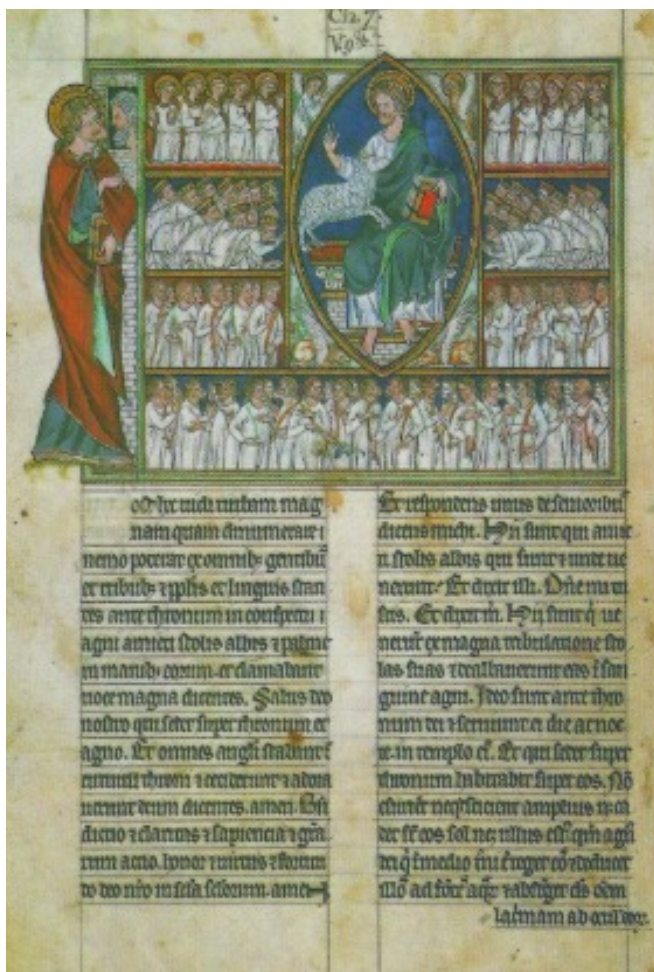 Ch. 7.
ost hec uidi turbam mag
nam quam dinumerare
nemo poterat ex omnib; gentibū
et tribub; ⁊ pplis et linguis stan
tes ante thronum in conspectu
agni amicti stolis albis ⁊ palme
in manib; eorum. et clamabant
uoce magna dicentes. Salus deo
nostro qui sedet super thronum et
agno. Et omnes angli stabant
circuitu throni ⁊ ceciderunt ⁊ adora
uerunt deum dicentes. amen. Bn
dictio ⁊ claritas ⁊ sapiencia ⁊ gra
rum actio. honor ⁊ uirtus ⁊ fortitu
do deo nro in scla sclorum. amen
Et respondens unus de senioribus
dicens michi. Hii sunt qui amic
ti stolis albis qui sunt ⁊ unde ue
nerunt. Et dixit illi. Dne mi tu
scis. Et dixit m. Hii sunt q ue
nerunt ex magna tribulatione sto
las suas ⁊ dealbauerunt eas i san
guine agni. Ideo sunt ante thro
num dei ⁊ seruiunt ei die ac noc
te. in templo ei. Et qui sedet super
thronum habitabit super eos. Nō
esurient neq sicient amplius n ca
det sr eos sol nec ullus est. qm agn
q medio
illos ad aq ⁊ absterget ds oēm
lacrimam ab